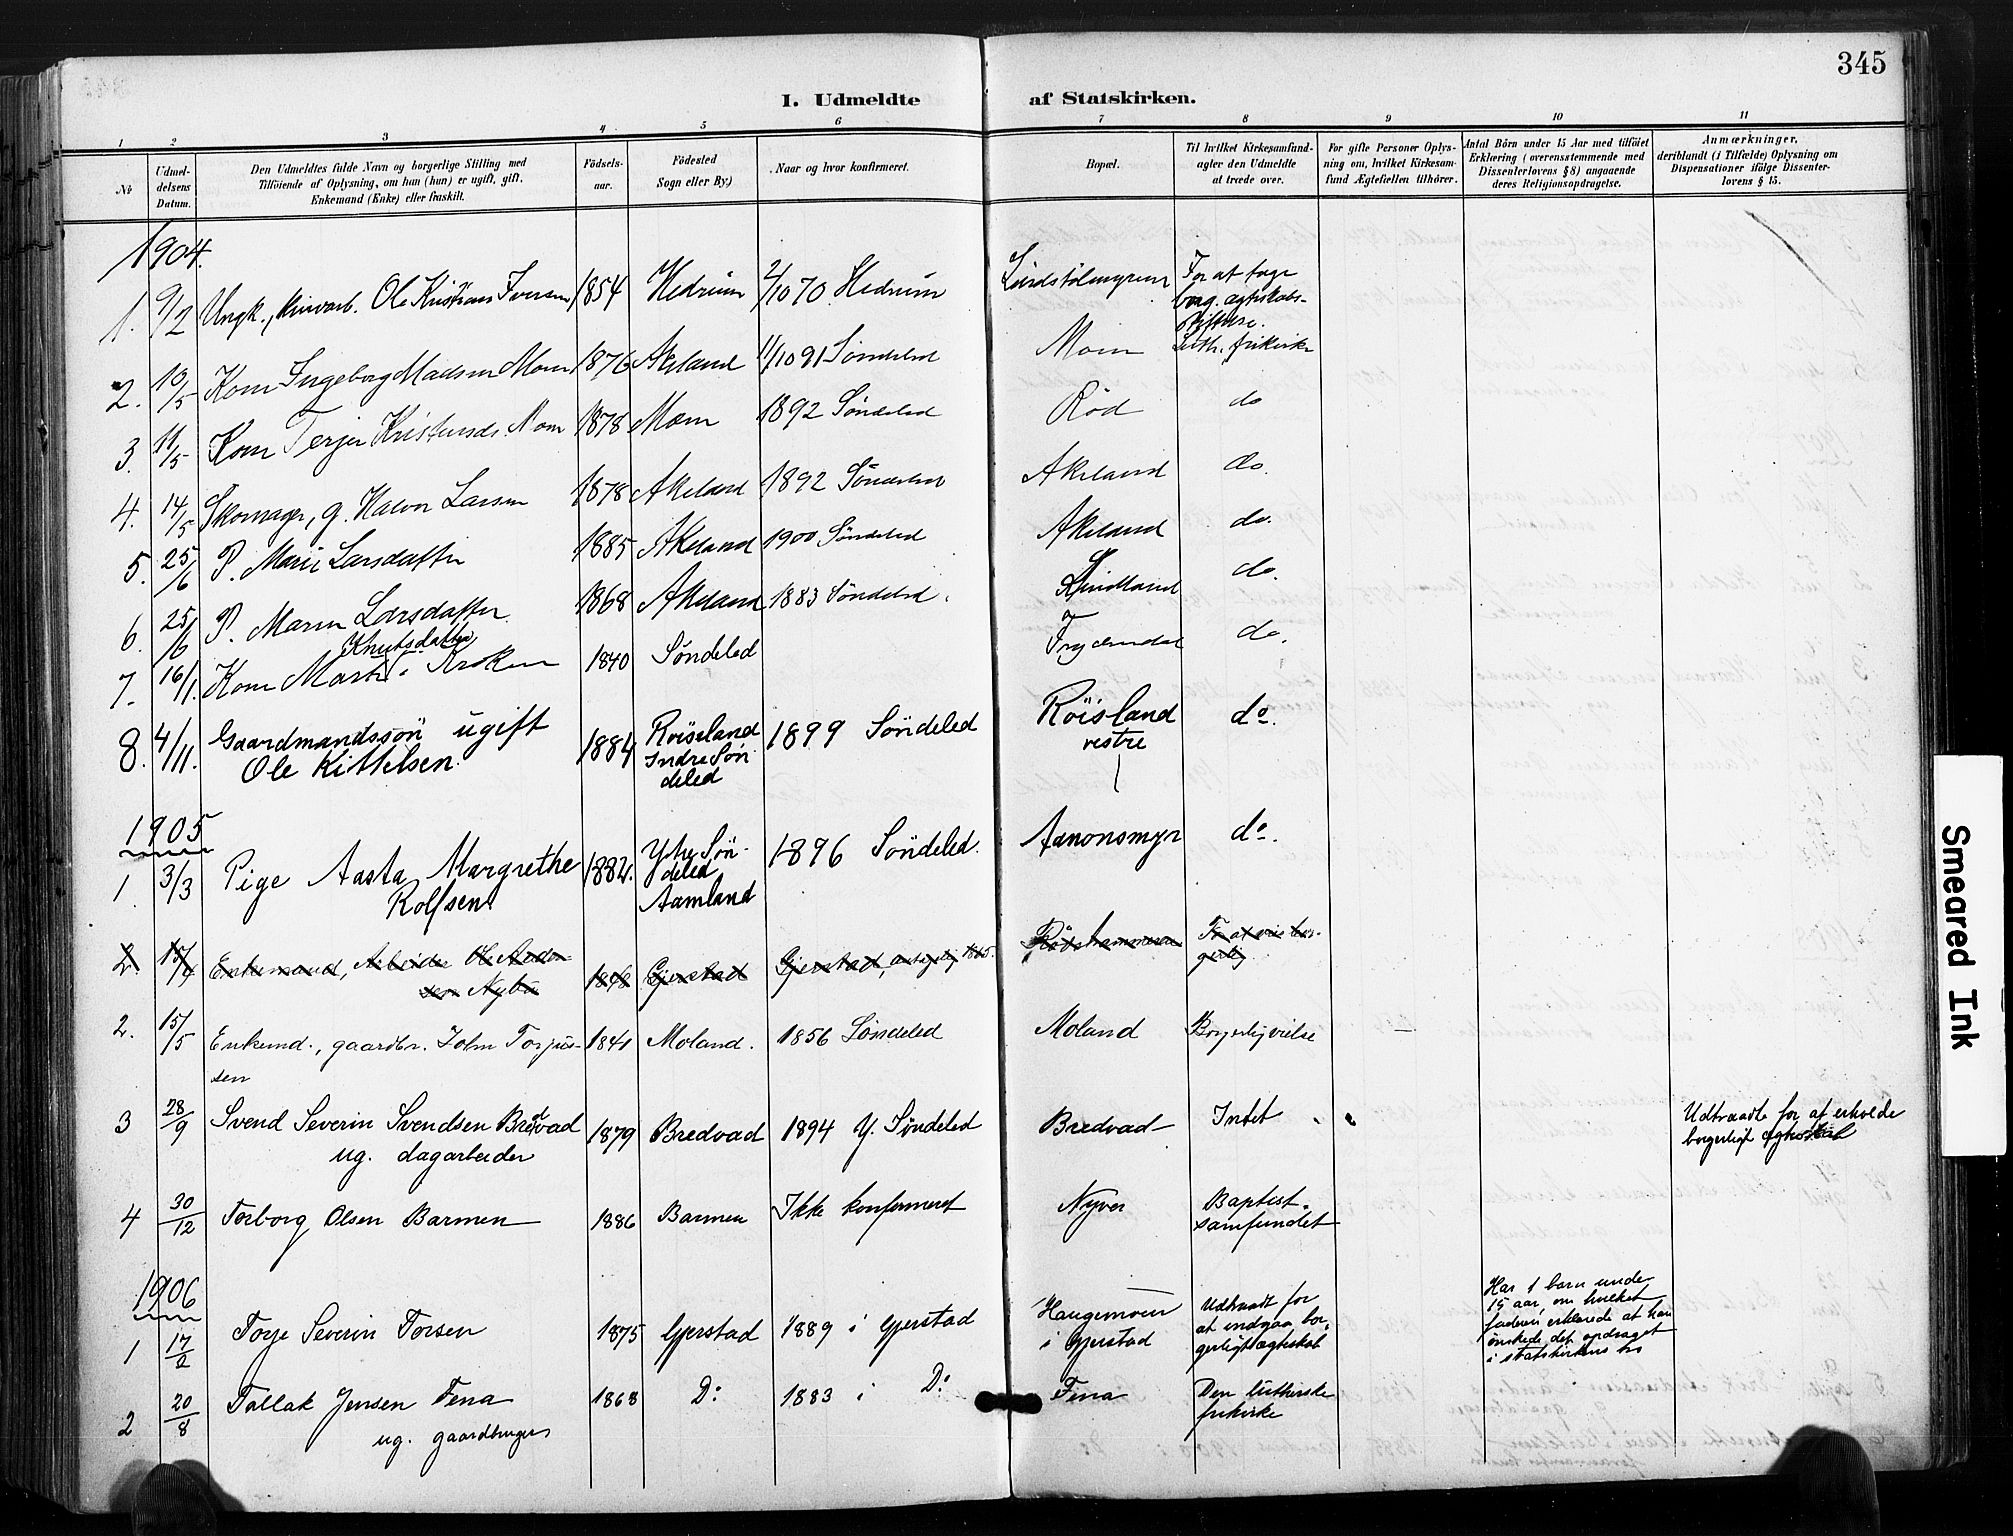 345
I. Udmeldte af Statskirken.
1 2 3 4 5 6 7 8 9 10 11
No
Udmeldelsens Datum.
Den Udmeldtes fulde Navn og borgerlige Stilling med
Tilföiende af Oplysning, om han (hun) er ugift, gift,
Enkemand (Enke) eller fraskilt.
Födselsaar.
Födested
Sogn eller By.)
Naar og hvor konfirmeret.
Bopæl.
Til hvilket Kirkesamfund
agter den Udmeldte
at træde over.
For gifte Personer Oplysning om, hvilket Kirkesamfund Ægtefællen tilhörer.
Antal Börn under 15 Aar med tilföiet
Erklæring (overensstemmende med
Dissenterlovens § 8) angaaende
deres Religionsopdragelse.
Anmærkninger,
deriblandt (i Tilfælde) Oplysning om
Dispensationer ifölge Dissenterlovens § 15.
1904.
1. 9/2 Ungk., Ole Kristian Iversen 1854 Hedrum 2/10 70 Hedrum For at tage
borg. ægteskabs-
2. 10/5 Kone Ingeborg Madsen Moen 1876 Akeland 11/10 91 Søndeled Moen Luth. frikirke
3. 11/5 Kone Terjer Kristensdr. Moen 1878 Moen 1892 Søndeled Röd do
4. 14/5 Skomager, g. Halvor Larsen 1878 Akeland 1892 Søndeled Akeland do.
5. 25/6 P. Marie Larsdatter 1885 Akeland 1900 Søndeled Akeland do.
6. 25/6 P. Maren Larsdatter 1868 Akeland 1883 Søndeled. Lindland do.
Knutsdatter
7. 16/1. Kone Kroken 1840 Søndeled do.
8. 4/11. Gaardmandssön ugift 1884 Röisland 1899 Söndeled Röisland do.
Ole Kittelsen. Indre Sön vestre
deled
1905
1. 3/3 Pige Aasta Margrethe 1882. Ytre Sön- 1896 Söndeled. Aanonsmyr do.
Rolfsen deled
Aamland
2 15/4 Enkemand, Arbeider Ole 1848 Gjerstad Gjerstad, 1865.
sen Nybu
2. 15/5 Enkemd., gaardbr. John Torjus- 1841 Moland. 1856 Søndeled Moland Borgerlig vielse
sen
3 28/9 Svend Severin Svendsen Bredvad 1879 Bredvad 1894 Y. Søndeled Bredvad Intet Udtraadt for at erholde
ug. dagarbeider borgerligt ægteskab
4 30/12 Torborg Olsen Barmen 1886 Barmen Ikke konfirmeret Nyver Baptist-
samfundet
1906
1 17/2 Torje Severin Torsen 1875 Gjerstad 1889 i Gjerstad Haugemoen
i Gjerstad
Udtraadt for
at indgaa bor-
gerligt ægteskab
Har 1 barn under
15 aar, om hvilket
faderen erklærede at han
ønskede det opdraget
i statskirkens tro
2 20/8 Tallak Jensen Fena 1868 Do 1883 i Do Fena Den lutherske
ug. gaardbruger frikirke
Smeared Ink